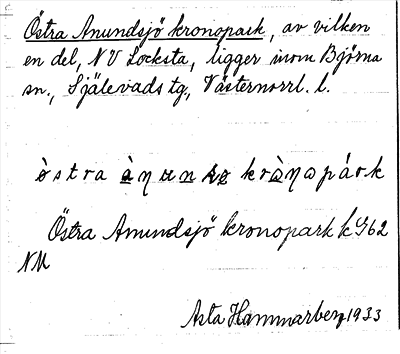 Östra Anundsjö kronopark, av vilken
en del, NV Locksta, ligger inom Björna
sn., Själevads tg, Västernorrl. l.
östra ànunʃø krònopárk
Östra Anundsjö kronopark k Y62
NM
Asta Hammarberg 1933